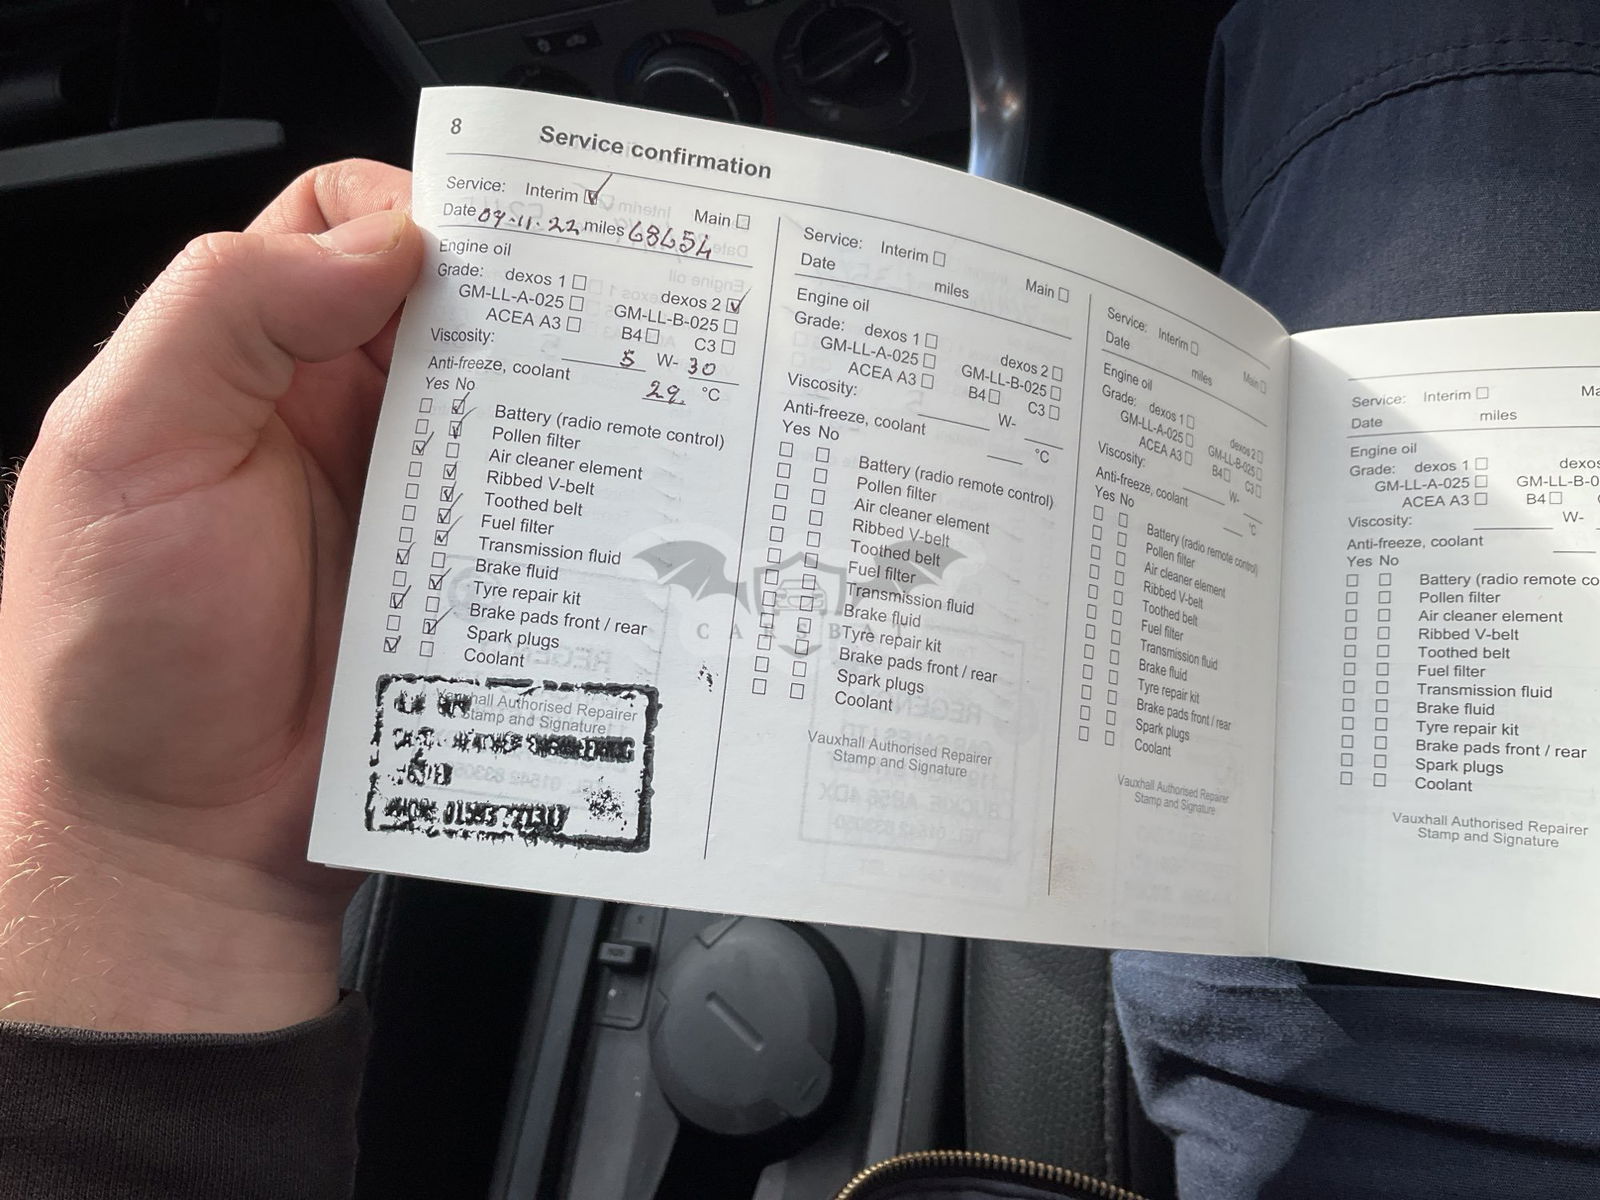 8 Service confirmation
Service: Interim Main
Date 09-11-22 miles 68654
Engine oil
Grade: dexos 1 dexos 2
GM-LL-A-025 GM-LL-B-025
ACEA A3 B4 C3
Viscosity: 5 W- 30
Anti-freeze, coolant 29 °C
Yes No
Battery (radio remote control)
Pollen filter
Air cleaner element
Ribbed V-belt
Toothed belt
Fuel filter
Transmission fluid
Brake fluid
Tyre repair kit
Brake pads front / rear
Spark plugs
Coolant
Vauxhall Authorised Repairer
Stamp and Signature
ENGINEERING
PHONE
Service: Interim Main
Date miles
Engine oil
Grade: dexos 1 dexos 2
GM-LL-A-025 GM-LL-B-025
ACEA A3 B4 C3
Viscosity: W-
Anti-freeze, coolant °C
Yes No
Battery (radio remote control)
Pollen filter
Air cleaner element
Ribbed V-belt
Toothed belt
Fuel filter
Transmission fluid
Brake fluid
Tyre repair kit
Brake pads front / rear
Spark plugs
Coolant
Vauxhall Authorised Repairer
Stamp and Signature
Service: Interim Main
Date miles
Engine oil
Grade: dexos 1 dexos 2
GM-LL-A-025 GM-LL-B-025
ACEA A3 B4 C3
Viscosity: W-
Anti-freeze, coolant °C
Yes No
Battery (radio remote control)
Pollen filter
Air cleaner element
Ribbed V-belt
Toothed belt
Fuel filter
Transmission fluid
Brake fluid
Tyre repair kit
Brake pads front / rear
Spark plugs
Coolant
Vauxhall Authorised Repairer
Stamp and Signature
Service: Interim Ma
Date miles
Engine oil
Grade: dexos 1 dexos
GM-LL-A-025 GM-LL-B-0
ACEA A3 B4
Viscosity: W-
Anti-freeze, coolant
Yes No
Battery (radio remote co
Pollen filter
Air cleaner element
Ribbed V-belt
Toothed belt
Fuel filter
Transmission fluid
Brake fluid
Tyre repair kit
Brake pads front / rear
Spark plugs
Coolant
Vauxhall Authorised Repairer
Stamp and Signature